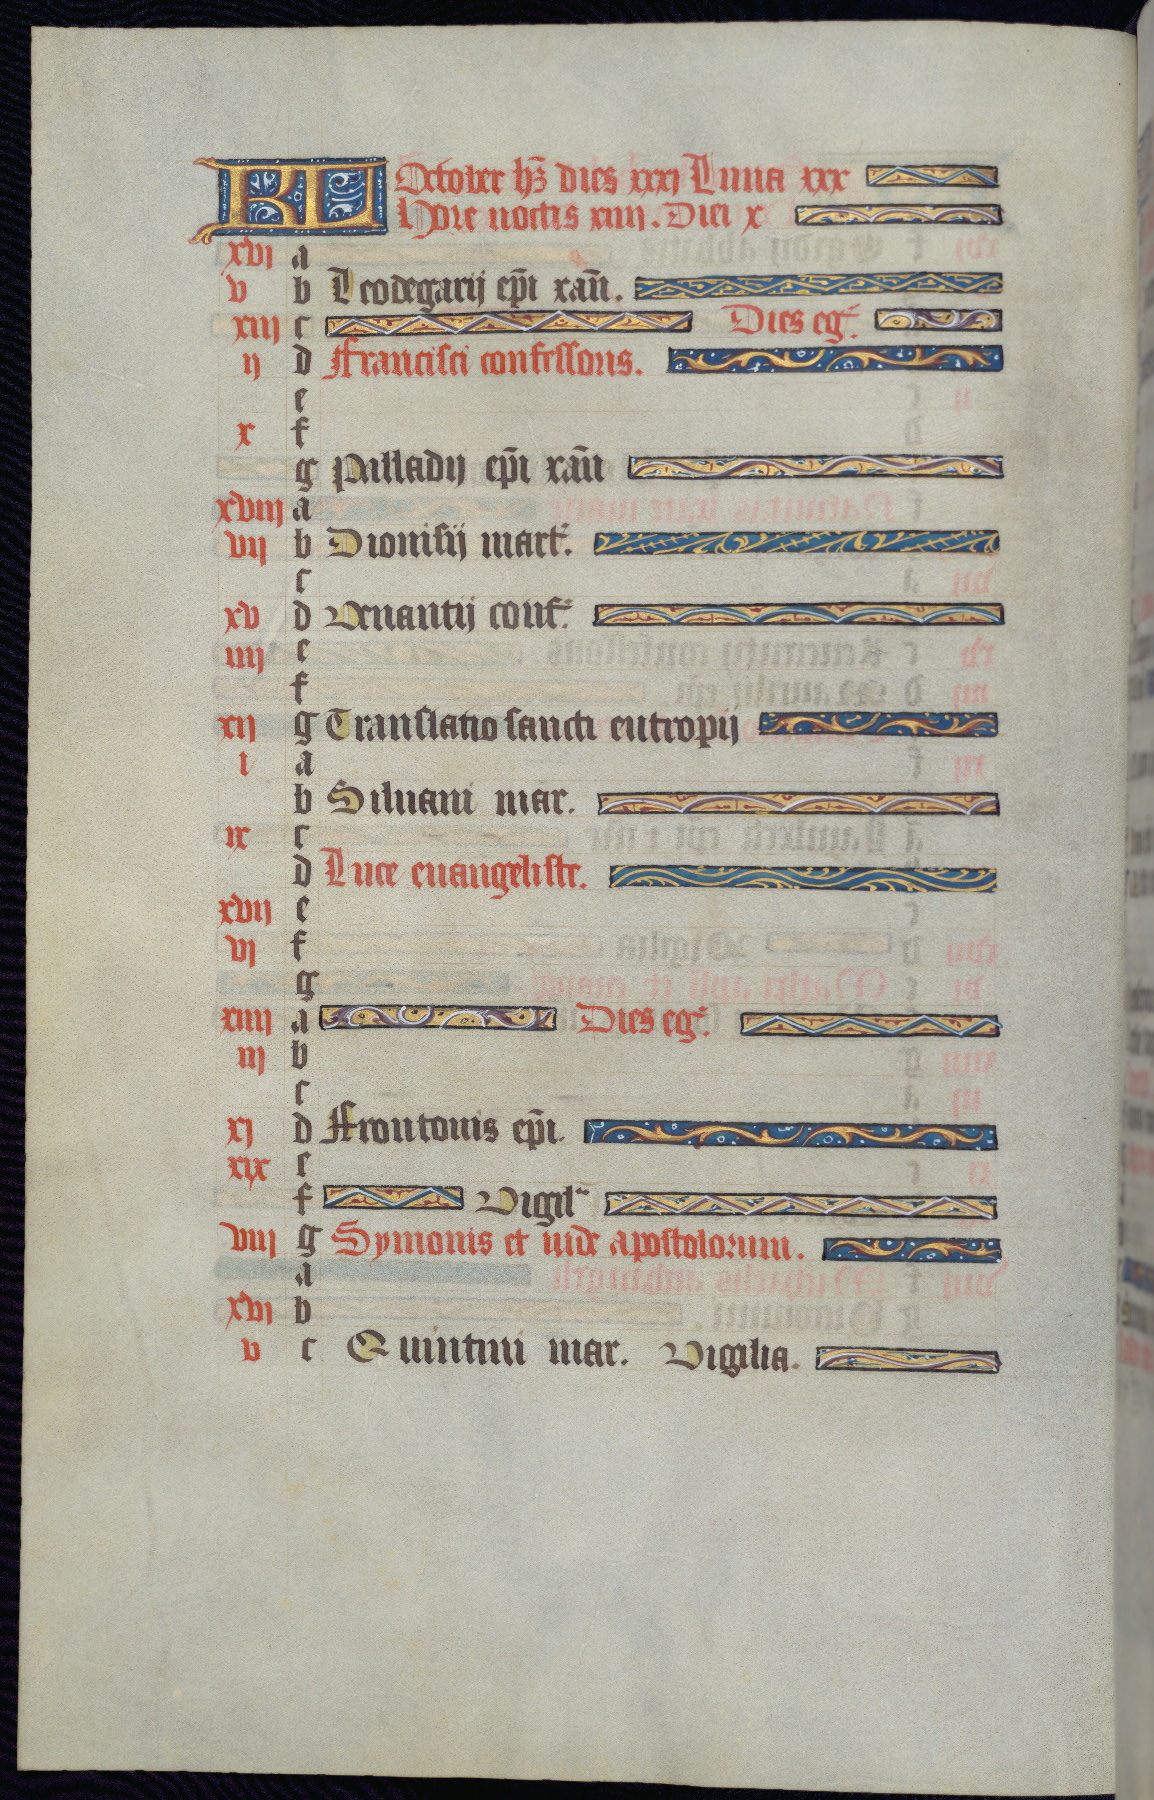 KL October hz̄ dies xxxj Luna xxx
Hore noctis xiiij. Diei x
xvj a
v b Leodegarij ep̄i xan̄.
xiij c Dies eg.
ij d Francisci confessoris.
e
x f
g Palladij ep̄i xan̄
xviij a
vij b Dionisij mart.
c
xv d Venantij conf.
iiij e
f
xij g Translatio sancti eutropij
i a
b Siluani mar.
ix c
d Luce euangeliste.
xvij e
vj f
g
xiiij a Dies eg.
iij b
c
xj d Frontonis ep̄i.
xix e
f Vigil
viij g Symonis et iude apostolorum.
a
xvj b
v c Quintini mar. Vigilia.